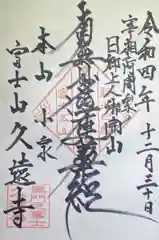 令和四年 十二月三十日
宗祖御開眼
日朝上人御開山
南無妙法蓮華経
本山 小泉
富士山 久遠寺